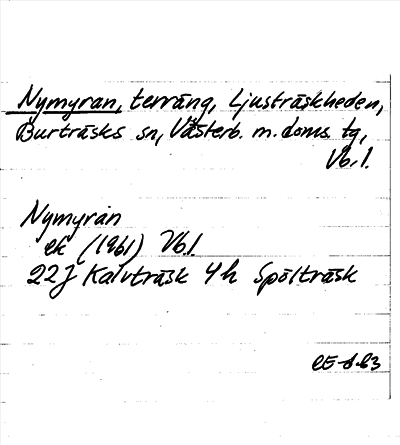 Nymyran, terräng, Ljusträskheden,
Burträsks sn, Västerb. m. doms. tg,
Vb. l.
Nymyran
ek (1961) Vb l.
22 J Kalvträsk 4 h Spölträsk